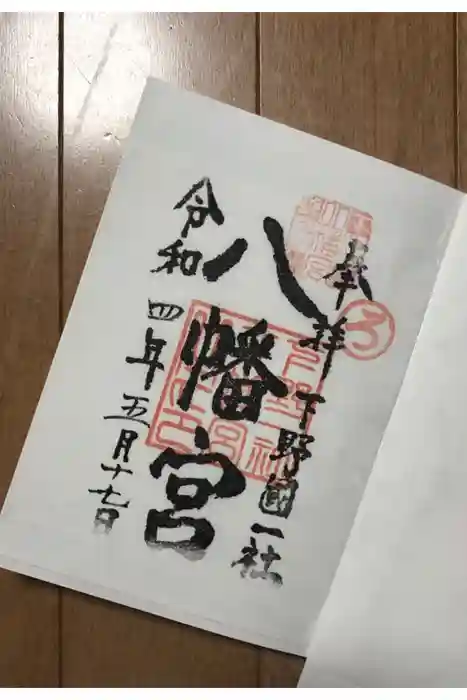 奉拝
下野國一社
八幡宮
令和四年五月十七日